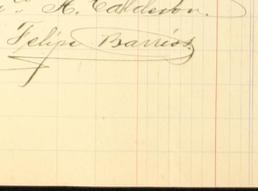 A. Calderon.
Felipe Barrios